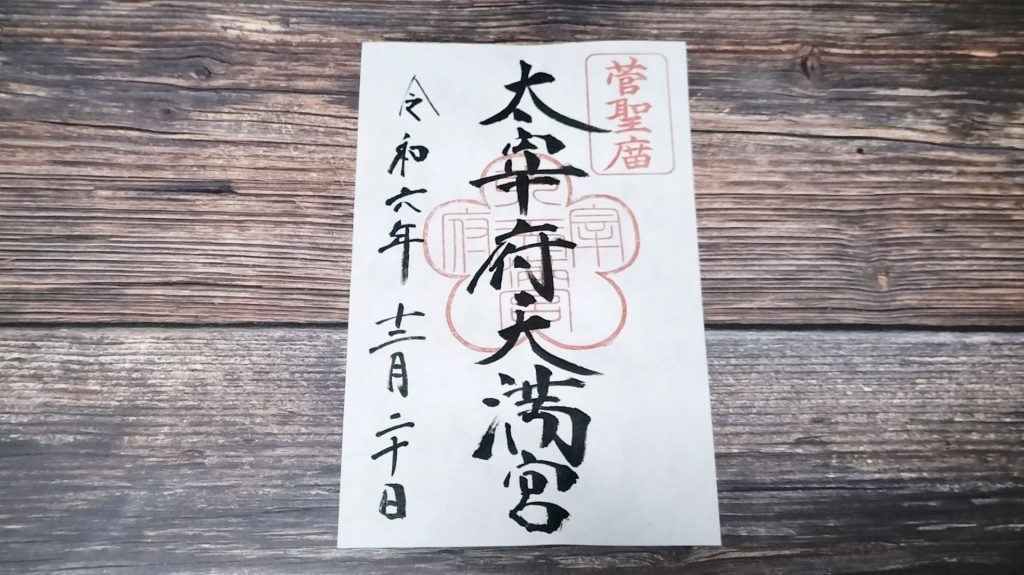 菅聖庿
太宰府天満宮
令和六年 十二月 二十日